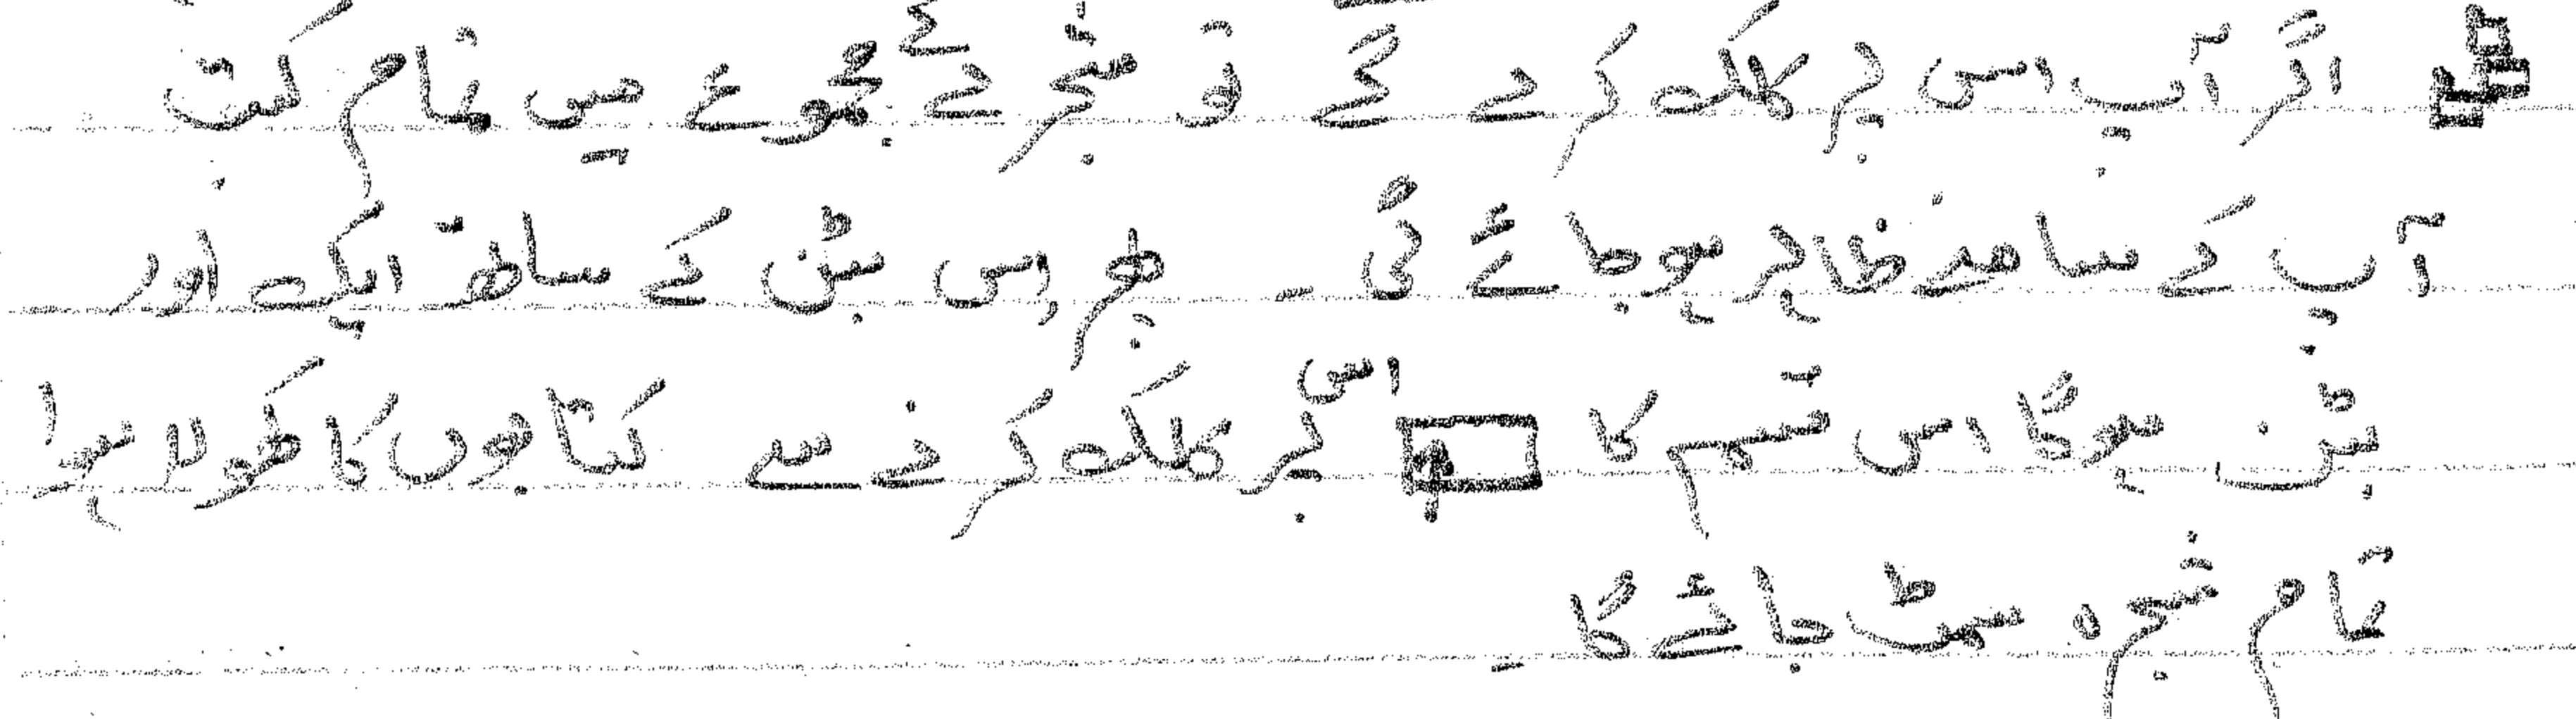 اگر آپ اس پر کلک کرے گے تو شجر کے مجموعے میں تمام کتب
آپ کے سامنے ظاہر ہوجائے گی ۔ پھر اس بٹن کے ساتھ ایک اور
بٹن ہوگا اس قسم کا اس پر کلک کرنے سے کتابوں کا کھولا ہوا
تمام شجرہ سمٹ جائے گا ۔